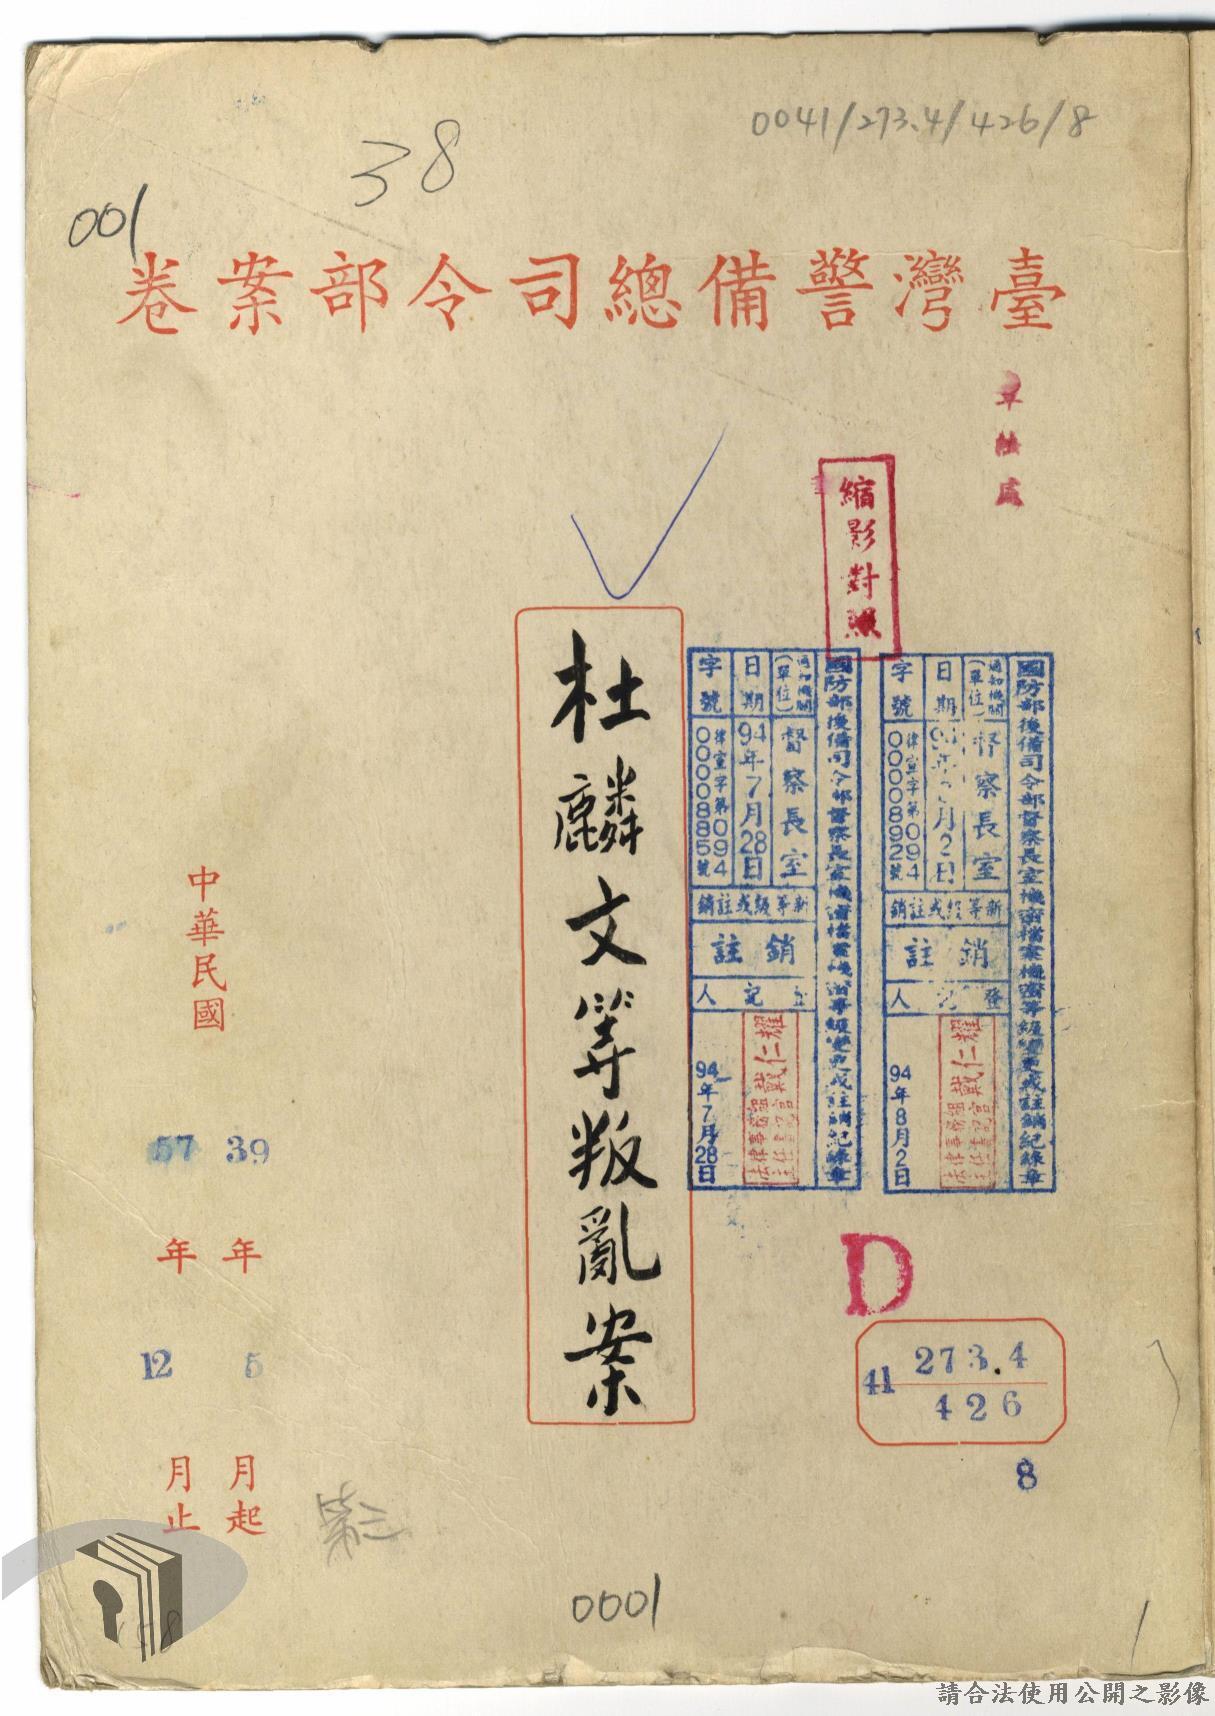 0041/273.4/426/8
38
001
臺灣警備總司令部案卷
軍法處
縮影對照
國防部後備司令部督察長室機密檔案機密等級變更或註銷紀錄章
通知機關(單位)
督察長室
日期
94年 月2日
字號
律宣字第0940000892號
新等級或註銷
註銷
登記人
法律事務組主任書記官戴仁耀
94年8月2日
國防部後備司令部督察長室機密檔案機密等級變更或註銷紀錄章
通知機關(單位)
督察長室
日期
94年7月28日
字號
律宣字第0940000885號
新等級或註銷
註銷
登記人
法律事務組主任書記官戴仁耀
94年7月28日
杜麟文等叛亂案
D
41
273.4
426
8
中華民國
39年5月起
57年12月止
第三
0001
1
158
請合法使用公開之影像